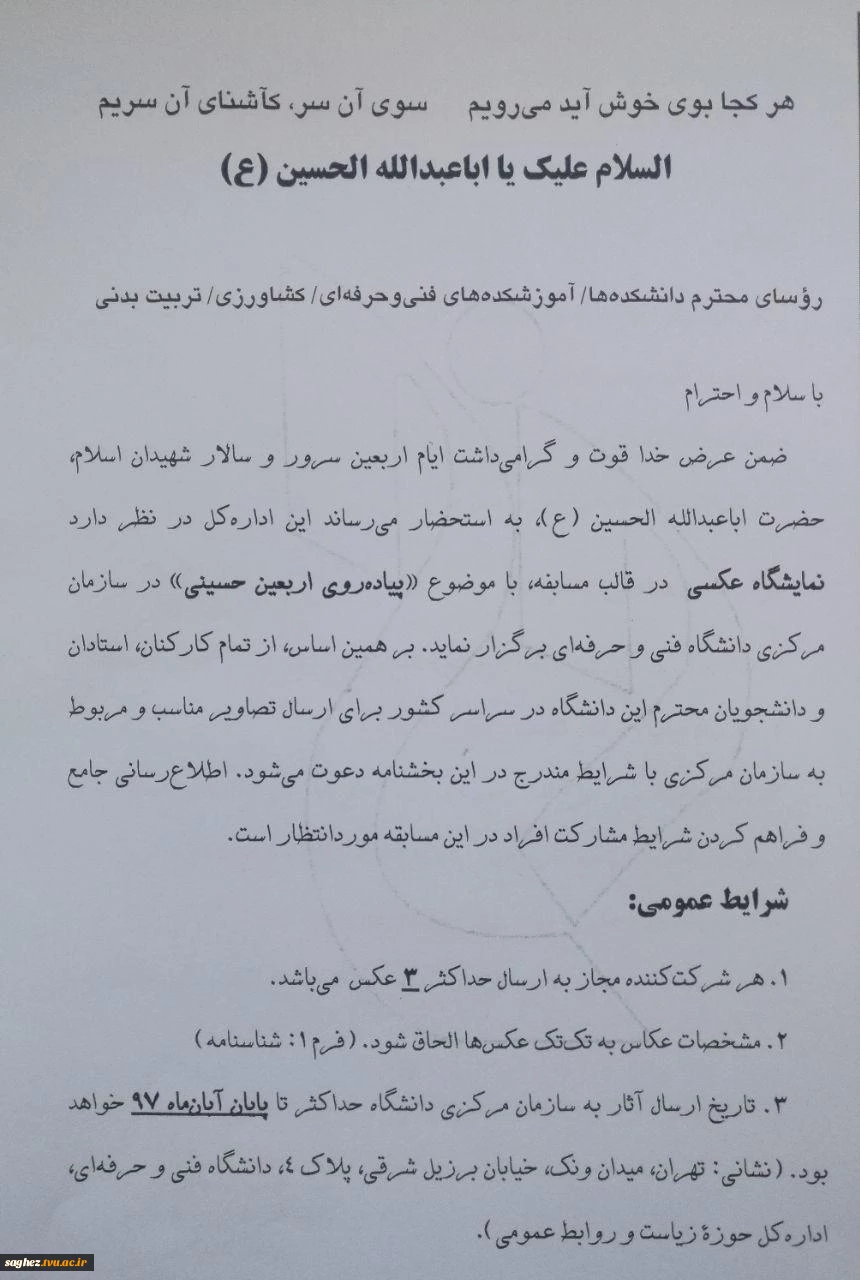 هر کجا بوی خوش آید می‌رویم سوی آن سر، کآشنای آن سریم
السلام علیک یا اباعبدالله الحسین (ع)
رؤسای محترم دانشکده‌ها/ آموزشکده‌های فنی‌وحرفه‌ای/ کشاورزی/ تربیت بدنی
با سلام و احترام
ضمن عرض خدا قوت و گرامی‌داشت ایام اربعین سرور و سالار شهیدان اسلام،
حضرت اباعبدالله الحسین (ع)، به استحضار می‌رساند این اداره‌کل در نظر دارد
نمایشگاه عکسی در قالب مسابقه، با موضوع «پیاده‌روی اربعین حسینی» در سازمان
مرکزی دانشگاه فنی و حرفه‌ای برگزار نماید. بر همین اساس، از تمام کارکنان، استادان
و دانشجویان محترم این دانشگاه در سراسر کشور برای ارسال تصاویر مناسب و مربوط
به سازمان مرکزی با شرایط مندرج در این بخشنامه دعوت می‌شود. اطلاع‌رسانی جامع
و فراهم کردن شرایط مشارکت افراد در این مسابقه موردانتظار است.
شرایط عمومی:
۱. هر شرکت‌کننده مجاز به ارسال حداکثر ۳ عکس می‌باشد.
۲. مشخصات عکاس به تک‌تک عکس‌ها الحاق شود. (فرم۱: شناسنامه)
۳. تاریخ ارسال آثار به سازمان مرکزی دانشگاه حداکثر تا پایان آبان‌ماه ۹۷ خواهد
بود. (نشانی: تهران، میدان ونک، خیابان برزیل شرقی، پلاک ٤، دانشگاه فنی و حرفه‌ای،
اداره‌کل حوزهٔ ریاست و روابط عمومی).
saghez.tvu.ac.ir